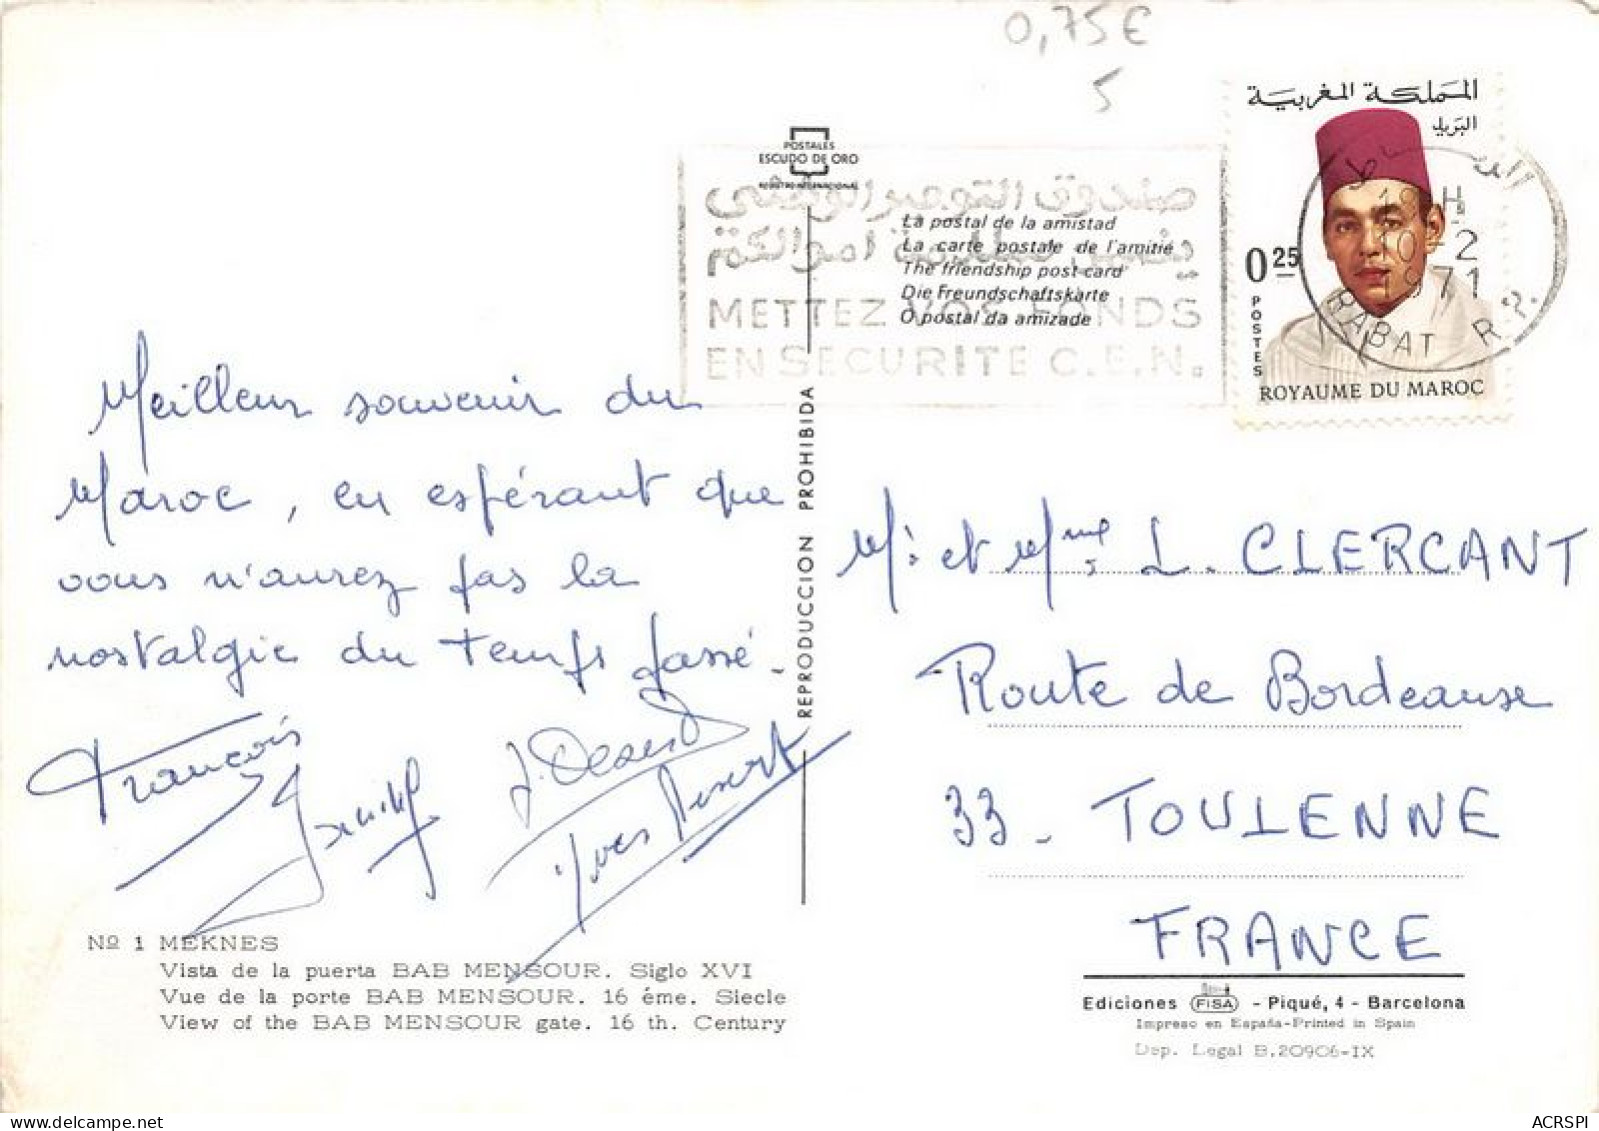 0,75€
5
المملكة المغربية
البريد
POSTALES
ESCUDO DE ORO
REGISTRO INTERNACIONAL
صندوق التوفير الوطني
METTEZ VOS FONDS
EN SECURITE C.E.N.
La postal de la amistad
La carte postale de l'amitié
The friendship post card
Die Freundschaftskarte
O postal da amizade
0,25
POSTES
ROYAUME DU MAROC
10-2
1971
RABAT R.P.
Meilleur souvenir du
Maroc, en espérant que
vous n'aurez pas la
nostalgie du temps passé.
François
J. Desert
Yves Desert
REPRODUCCION PROHIBIDA
Mr et Mme L. CLERCANT
Route de Bordeause
33 - TOULENNE
FRANCE
Nº 1 MEKNES
Vista de la puerta BAB MENSOUR. Siglo XVI
Vue de la porte BAB MENSOUR. 16 éme. Siecle
View of the BAB MENSOUR gate. 16 th. Century
Ediciones FISA - Piqué, 4 - Barcelona
Impreso en España-Printed in Spain
Dep. Legal B.20906-IX
www.delcampe.net
ACRSPI